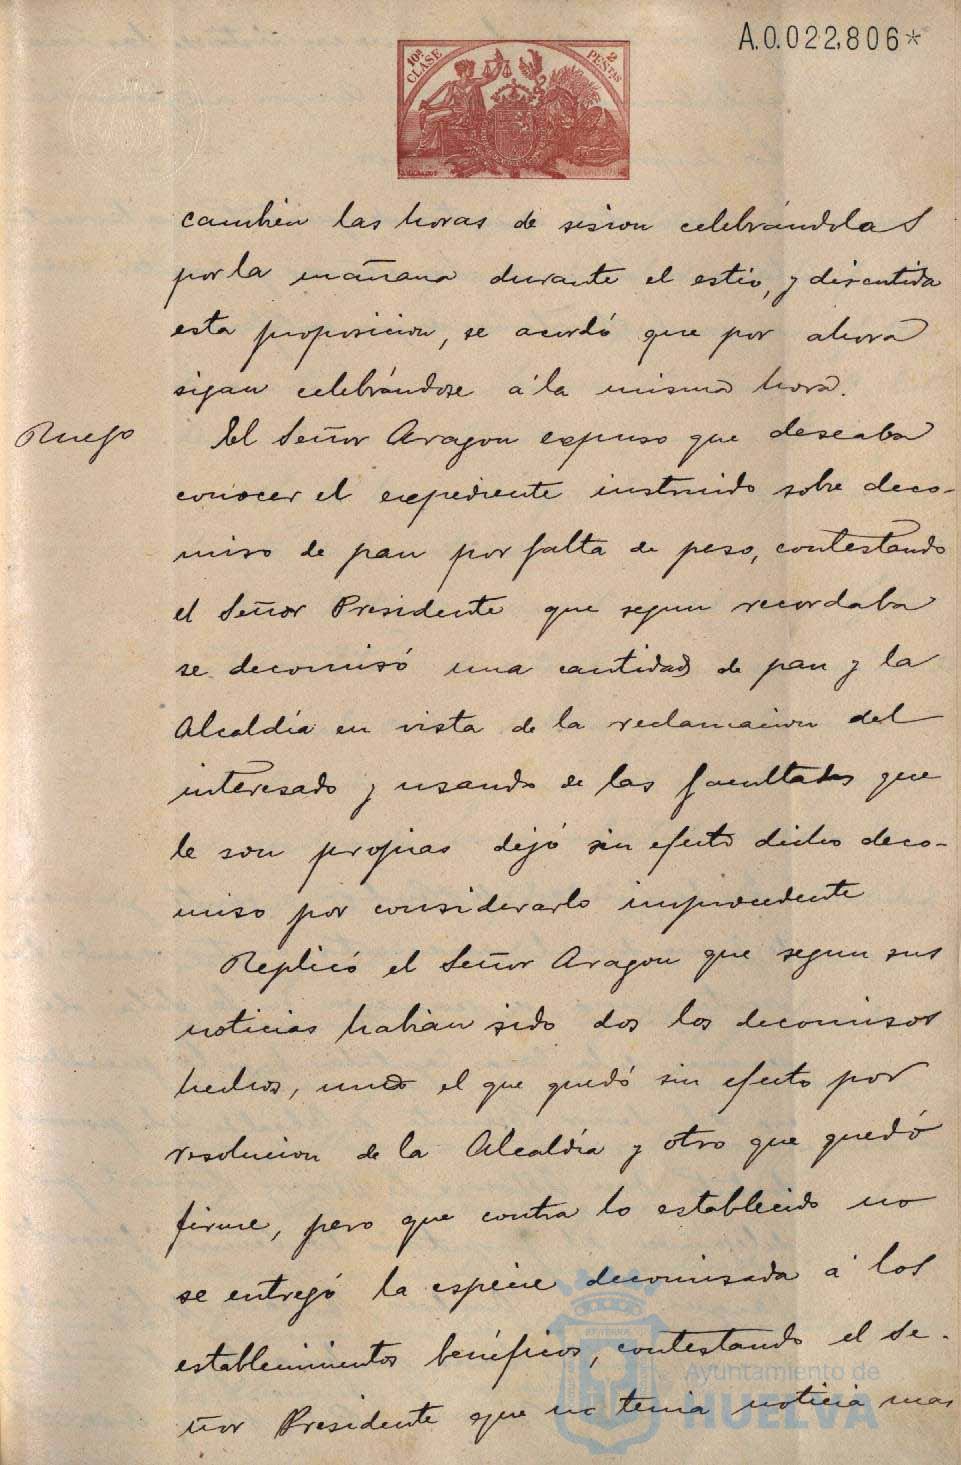 A.0.022,806*
10ª CLASE
2 PESTAS
cambien las horas de sesion celebrándolas
por la mañana durante el estio, y discutida
esta proposicion, se acordó que por ahora
sigan celebrándose á la misma hora.
Ruego
El Señor Aragon expuso que deseaba
conocer el expediente instruido sobre deco-
miso de pan por falta de peso, contestando
el Señor Presidente que segun recordaba
se decomisó una cantidad de pan y la
Alcaldía en vista de la reclamacion del
interesado y usando de las facultades que
le son propias dejó sin efecto dicho deco-
miso por considerarlo improcedente
Replicó el Señor Aragon que segun sus
noticias habian sido dos los decomisos
hechos, uno el que quedó sin efecto por
resolucion de la Alcaldía y otro que quedó
firme, pero que contra lo establecido no
se entregó la especie decomisada á los
establecimientos benéficos, contestando el Se-
ñor Presidente que no tenia noticia mas
Ayuntamiento de
HUELVA